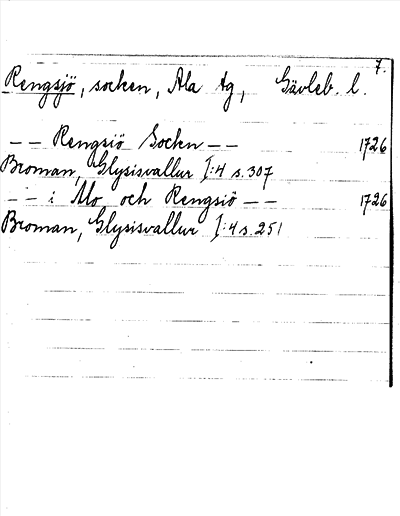 7.
Rengsjö, socken, Ala tg, Gävleb. l.
-- Rengsiö Socken -- 1726
Broman, Glysisvallur I:4 s. 307
-- i Mo och Rengsiö -- 1726
Broman, Glysisvallur I:4 s. 251